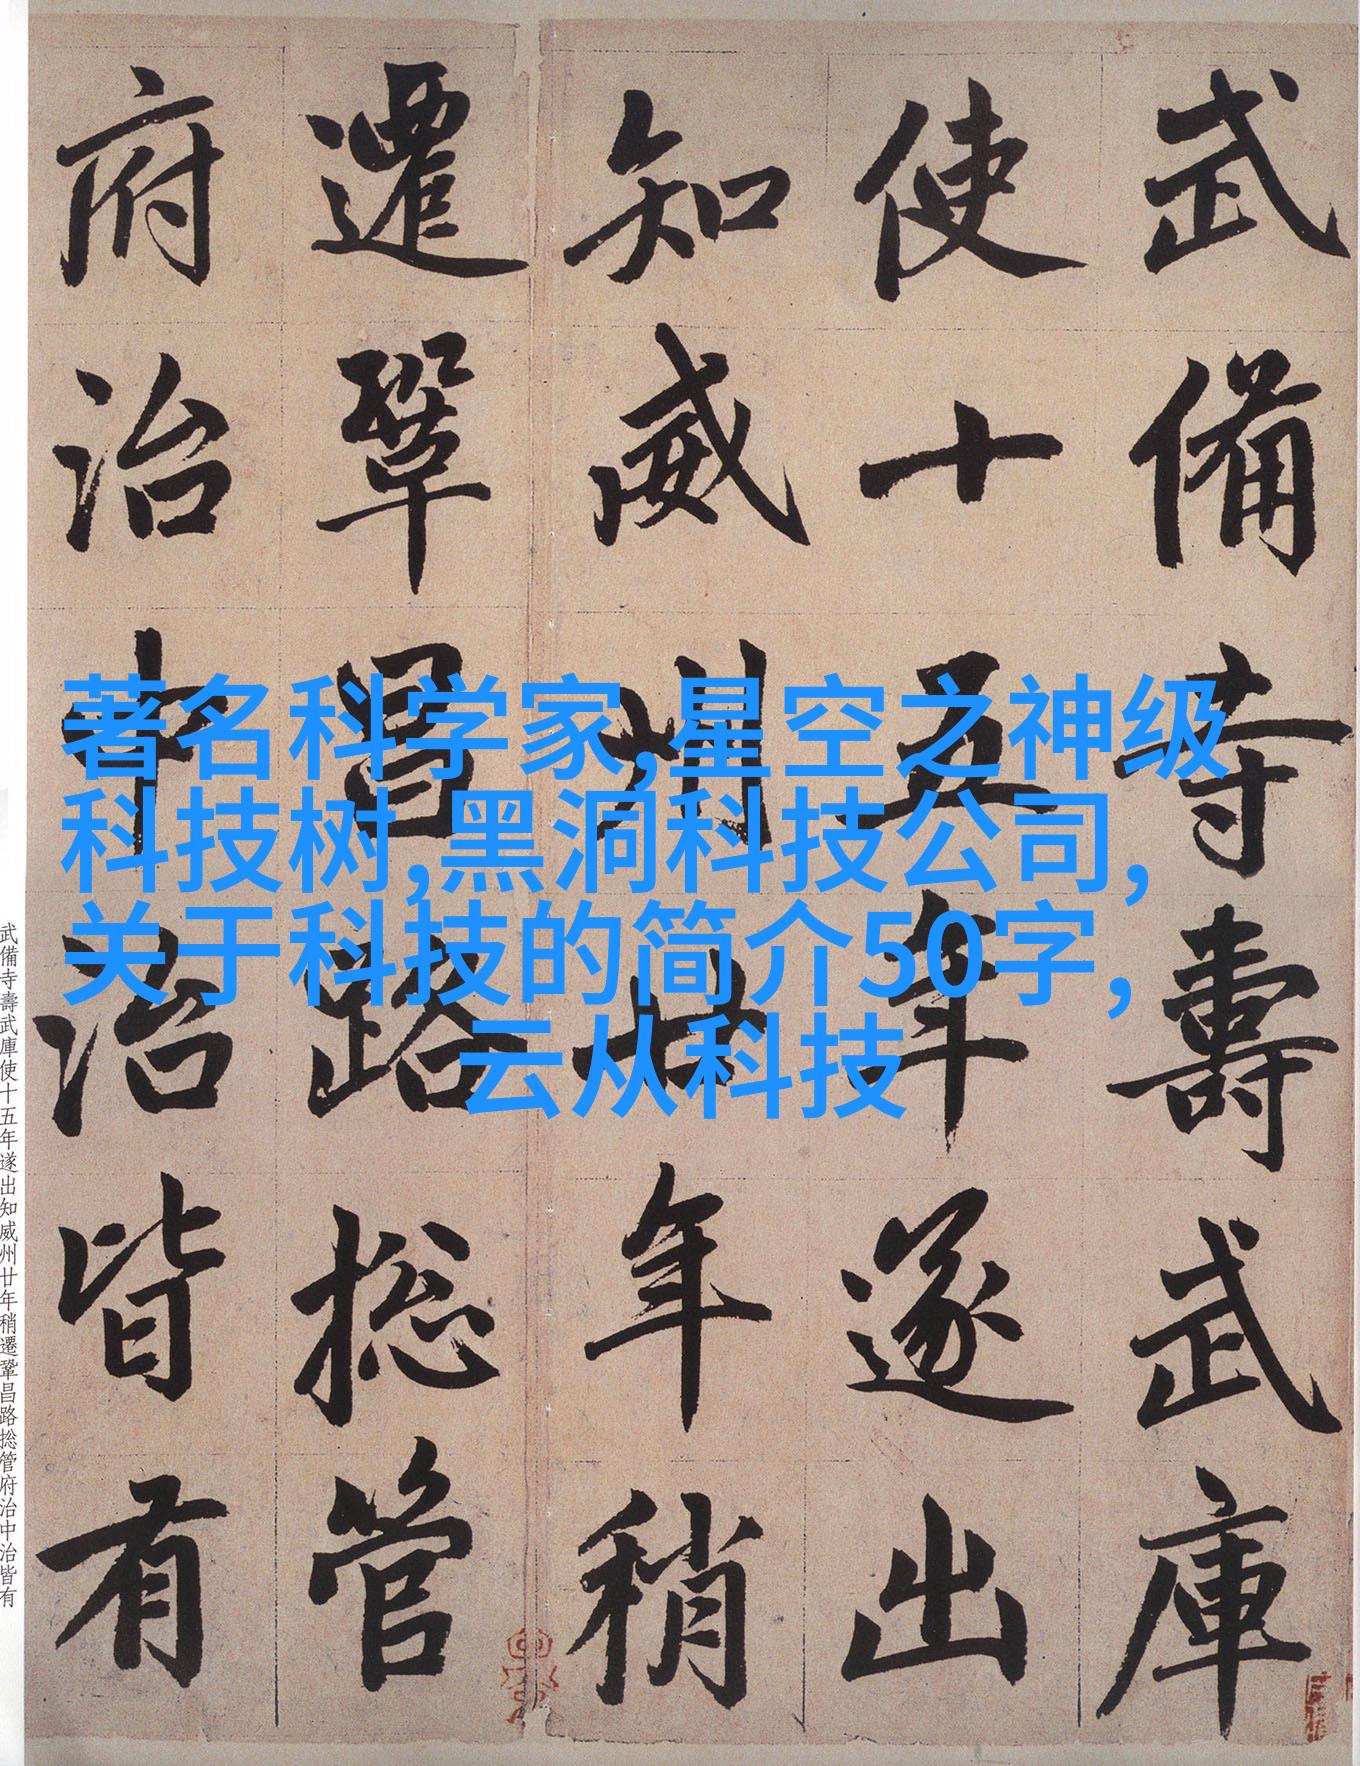 武備寺壽武庫
使十五年遂出
知威州廿年稍
遷鞏昌路捴管
府治中治皆有
著名科学家,星空之神级
科技树,黑洞科技公司,
关于科技的简介50字,
云从科技
武備寺壽武庫使十五年遂出知威州廿年稍遷鞏昌路捴管府治中治皆有